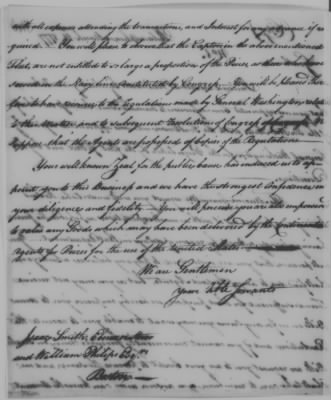 with all expences attending the transactions, and Interest for any advance if re
quired. You will please to observe that the Captors in the above mentioned
Fleet, are not entitled to so large a proportion of the Prizes, as those who have
served in the Navy line constituted by Congress. You will be pleased
to have recourse to the Regulations made by General Washington relative
to this Matter, and to subsequent Resolutions of Congress
suppose that the Agents are possessed of Copies of the Regulations
Your well known Zeal for the public cause has induced us to ap
point you to this Business and we have the strongest Confidence in
your diligence and fidelity. You will procure persons
to value any Goods which may have been delivered by the Continental
Agents for Prizes for the use of the United States
We are Gentlemen
Your Servants
Isaac Smith, Ebenezer
and William Philips Esqrs
Boston